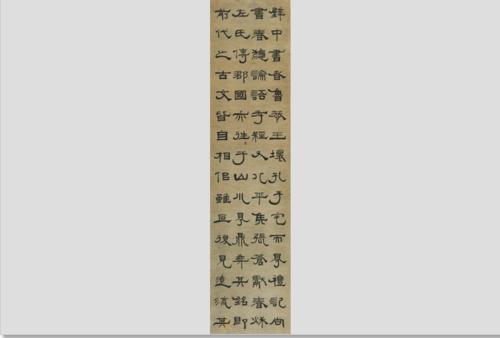 壁中書者魯恭王壞孔子宅而㝵禮記尚
書春穐論語孝經又北平矦張蒼獻春秌
左氏傳郡國亦往于山川㝵鼎彝其銘即
前代之古文皆自相佀雖叵復見遠流其